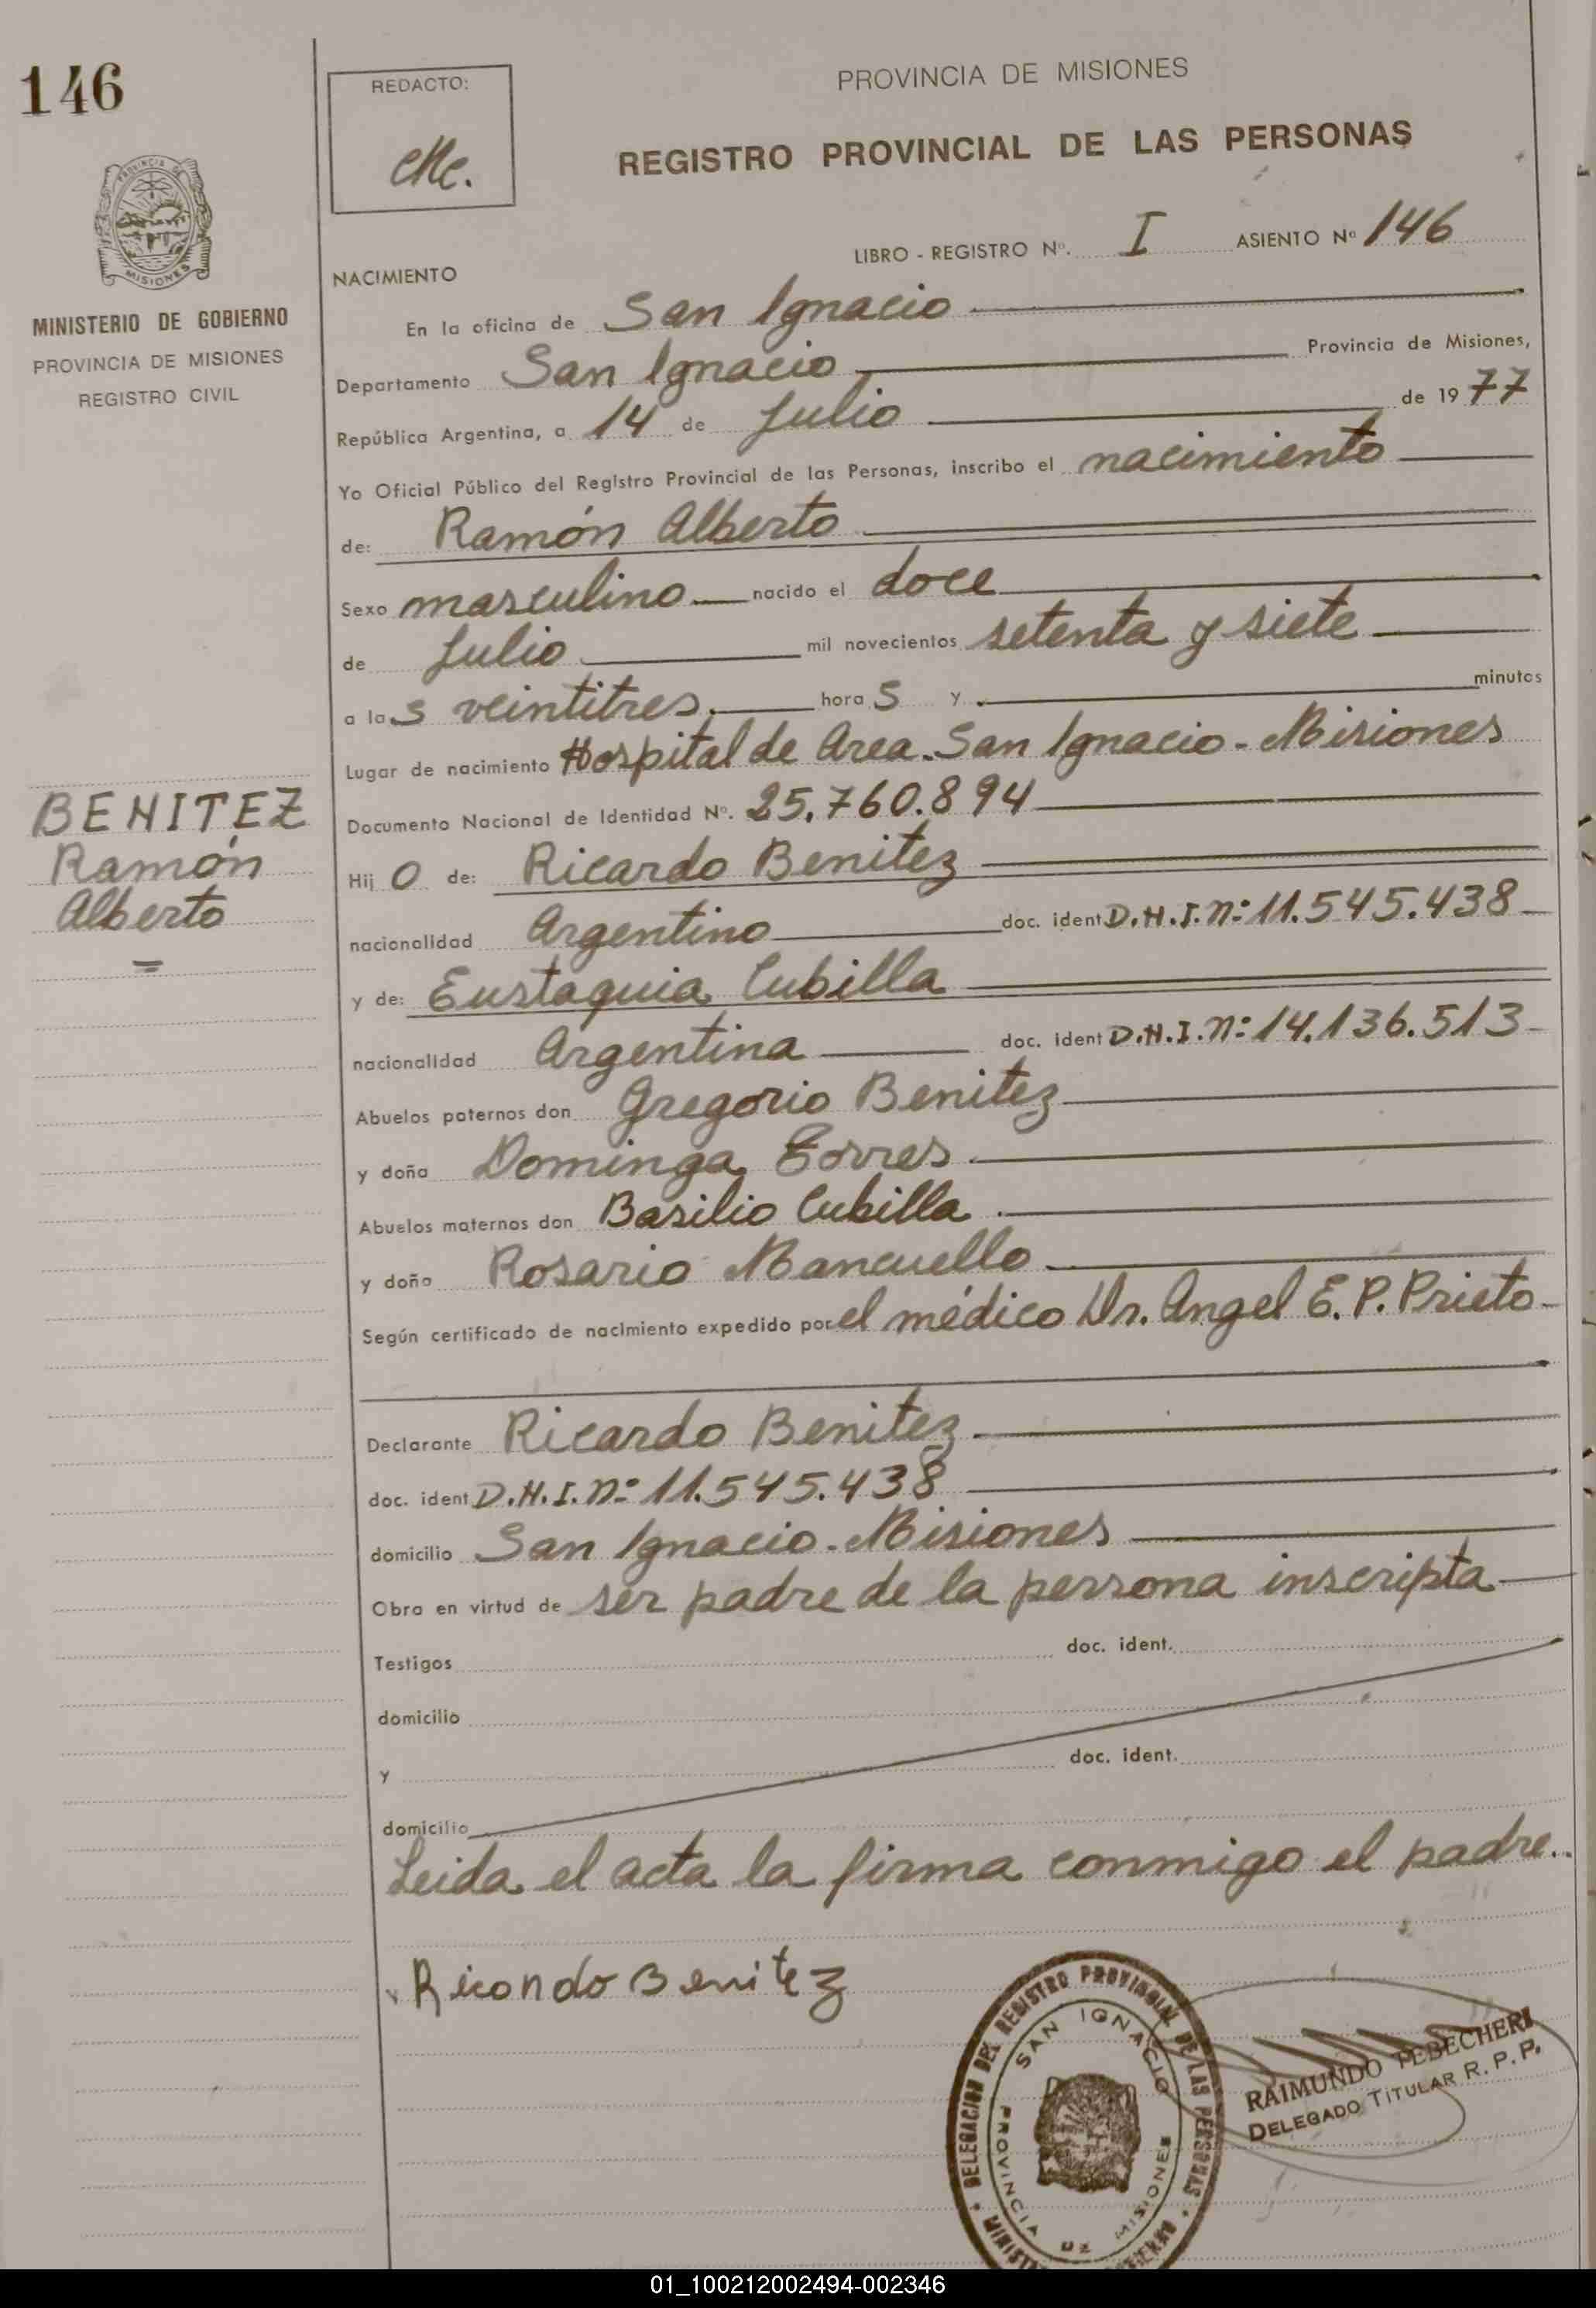 146
REDACTO:
PROVINCIA DE MISIONES
REGISTRO PROVINCIAL DE LAS PERSONAS
LIBRO - REGISTRO Nº. I ASIENTO Nº 146
PROVINCIA DE
MISIONES
MINISTERIO DE GOBIERNO
PROVINCIA DE MISIONES
REGISTRO CIVIL
NACIMIENTO
En la oficina de San Ignacio
Departamento San Ignacio Provincia de Misiones,
República Argentina, a 14 de Julio de 1977
Yo Oficial Público del Registro Provincial de las Personas, inscribo el nacimiento
de: Ramón Alberto
Sexo masculino nacido el doce
de Julio mil novecientos setenta y siete
a las veintitres hora s y minutos
Lugar de nacimiento Hospital de Area. San Ignacio - Misiones
Documento Nacional de Identidad Nº. 25.760.894
BENITEZ
Ramón
Alberto
Hijo de: Ricardo Benitez
nacionalidad Argentino doc. ident D.N.I. Nº 11.545.438
y de: Eustaquia Cubilla
nacionalidad Argentina doc. ident D.N.I. Nº 14.136.513
Abuelos paternos don Gregorio Benitez
y doña Dominga Torres
Abuelos maternos don Basilio Cubilla
y doña Rosario Mancuello
Según certificado de nacimiento expedido por el médico Dr. Angel E. P. Prieto
Declarante Ricardo Benitez
doc. ident D.N.I. Nº 11.545.438
domicilio San Ignacio - Misiones
Obra en virtud de ser padre de la persona inscripta
Testigos doc. ident.
domicilio
y doc. ident.
domicilio
Leida el acta la firma conmigo el padre.
Ricondo Benitez
DELEGACION DEL REGISTRO PROVINCIAL DE LAS PERSONAS
SAN IGNACIO
PROVINCIA DE MISIONES
RAIMUNDO PEBECHERI
DELEGADO TITULAR R. P. P.
01_100212002494-002346